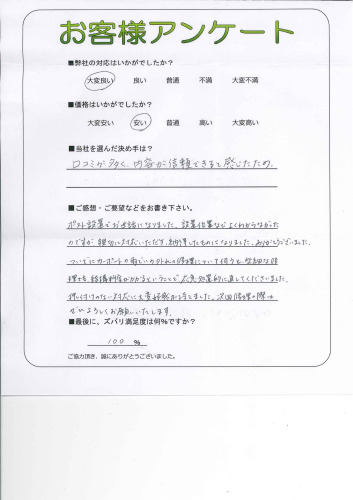 お客様アンケート
■弊社の対応はいかがでしたか？
大変良い 良い 普通 不満 大変不満
■価格はいかがでしたか？
大変安い 安い 普通 高い 大変高い
■当社を選んだ決め手は？
口コミが多く、内容が信頼できると感じたため。
■ご感想・ご要望などをお書き下さい。
ポスト設置でお世話になりました。設置位置などよくわからなかった
のですが、親切に対応いただき、納得したものになりました。ありがとうございました。
ついでにカーポートの雨どいの外れの修理について伺うと、本格的な修
理も結構料金がかかるということで、応急処置的に直してくださいました。
押し付けのない対応に大変好感が持てました。次回修理の際は
ぜひよろしくお願いいたします。
■最後に、ズバリ満足度は何%ですか？
100 %
ご協力頂き、誠にありがとうございました。